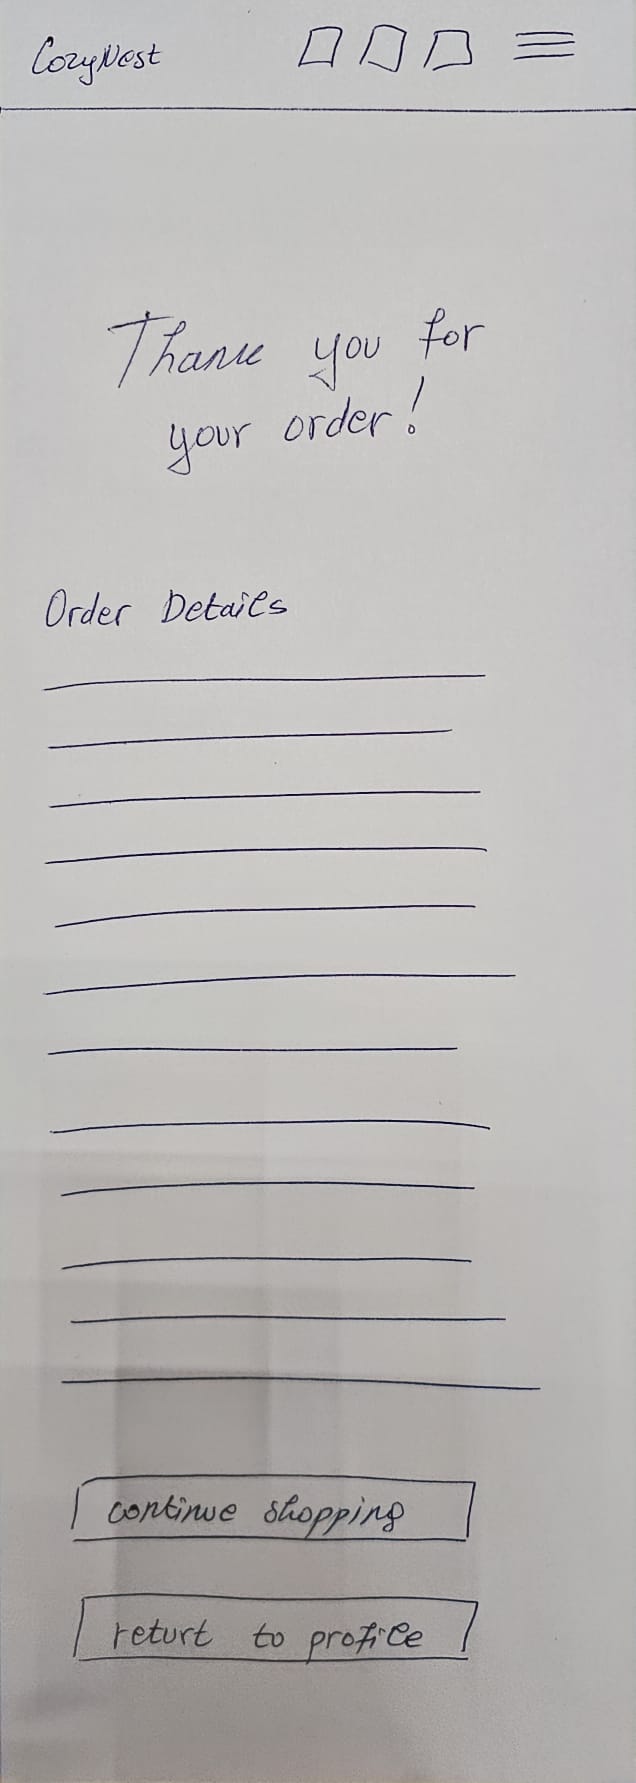 CozyNest
Thank you for
your order!
Order Details
continue shopping
returt to profile